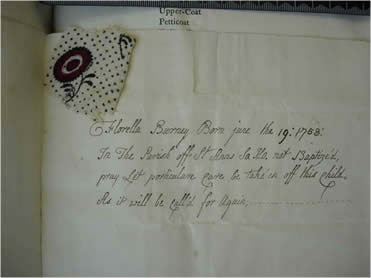 Upper-Coat
Petticoat
Florella Burney Born june the 19: 1758:
In The Parish off St Anns So Ho. not Baptize'd,
pray Let particulare Care be take'en off this Child,
As it will be call'd for Again,